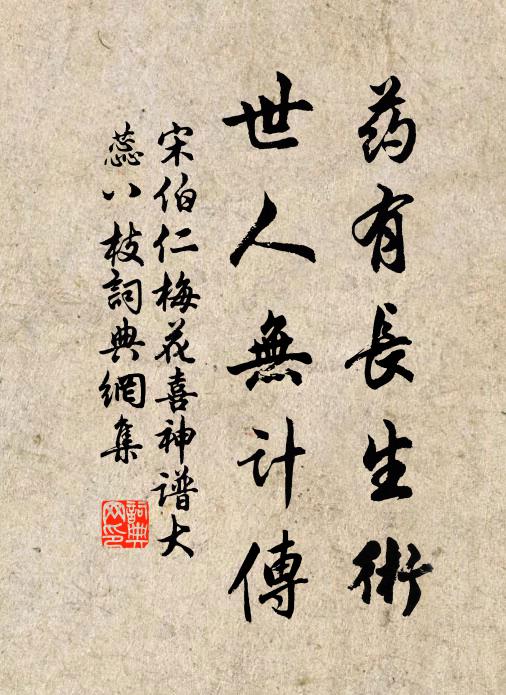 药有長生術
世人無計傳
宋伯仁梅花喜神谱大
蕊八枝詞典網集
詞典
网印